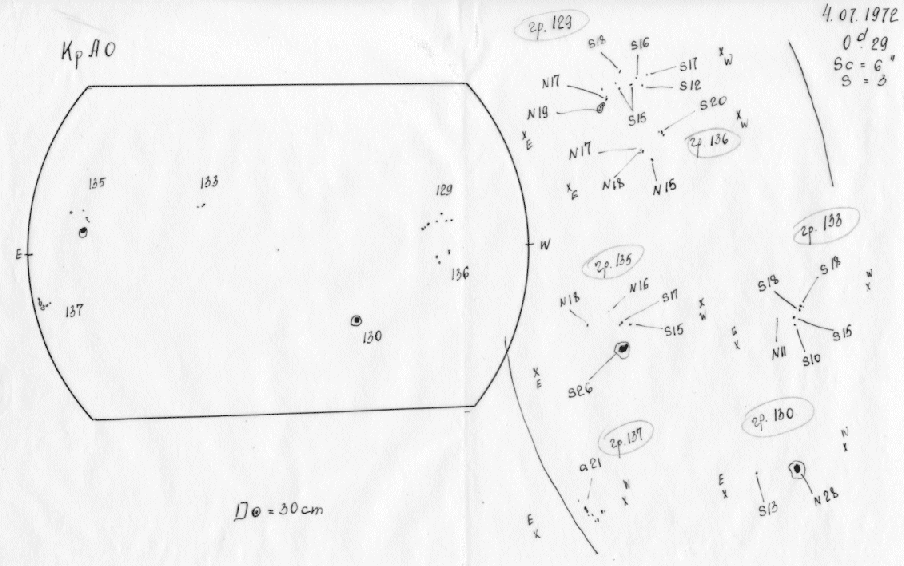 КрАО
4.07.1972
0ᵈ29
Sc = 6"
S = 3
135
133
129
E
W
136
137
130
D⊙ = 30cm
гр. 129
S18
S16
S17
S12
N17
N19
S15
X
W
X
E
гр. 136
S20
X
W
N17
N18
N15
X
E
гр. 135
N18
N16
S17
S15
S26
X
W
X
E
гр. 133
S18
S18
W
X
E
X
N11
S10
S15
гр. 137
a21
W
X
E
X
гр. 130
W
X
E
X
S13
N28